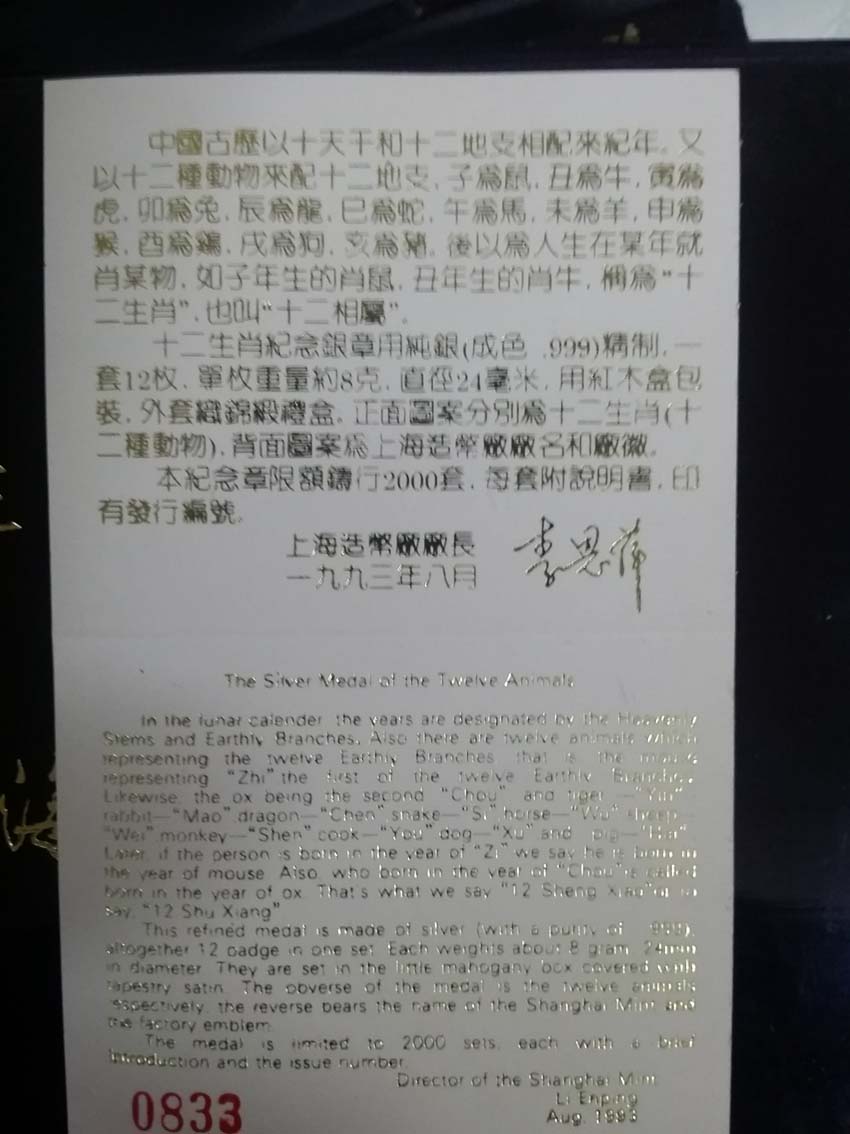 中國古歷以十天干和十二地支相配來紀年。又
以十二種動物來配十二地支，子爲鼠，丑爲牛，寅爲
虎，卯爲兔，辰爲龍，巳爲蛇，午爲馬，未爲羊，申爲
猴，酉爲鷄，戌爲狗，亥爲豬。後以爲人生在某年就
肖某物，如子年生的肖鼠，丑年生的肖牛，稱爲“十
二生肖”，也叫“十二相屬”。
十二生肖紀念銀章用純銀(成色 .999)精制，一
套12枚，單枚重量約8克，直徑24毫米，用紅木盒包
裝，外套織錦緞禮盒。正面圖案分别爲十二生肖(十
二種動物)，背面圖案爲上海造幣廠廠名和廠徽。
本紀念章限額鑄行2000套，每套附説明書，印
有發行編號。
上海造幣廠廠長 李恩萍
一九九三年八月
The Silver Medal of the Twelve Animals
In the lunar calender the years are designated by the Heavenly
Stems and Earthly Branches. Also there are twelve animals which
representing the twelve Earthly Branches, that is the mouse
representing “Zhi” the first of the twelve Earthly Branches.
Likewise, the ox being the second “Chou” and tiger —“Yin”
rabbit—“Mao” dragon—“Chen” snake—“Si” horse—“Wu” sheep—
“Wei” monkey—“Shen” cook—“You” dog—“Xu” and pig—“Hai”.
Later, if the person is born in the year of “Zi” we say he is born in
the year of mouse. Also, who born in the year of “Chou” is called
born in the year of ox. That's what we say “12 Sheng Xiao” or to
say, “12 Shu Xiang”
This refined medal is made of silver (with a purity of .999),
altogether 12 badge in one set. Each weights about 8 gram, 24mm
in diameter. They are set in the little mahogany box covered with
tapestry satin. The obverse of the medal is the twelve animals
respectively, the reverse bears the name of the Shanghai Mint and
the factory emblem.
The medal is limited to 2000 sets, each with a brief
Introduction and the issue number.
Director of the Shanghai Mint
Li Enping
0833
Aug. 1993